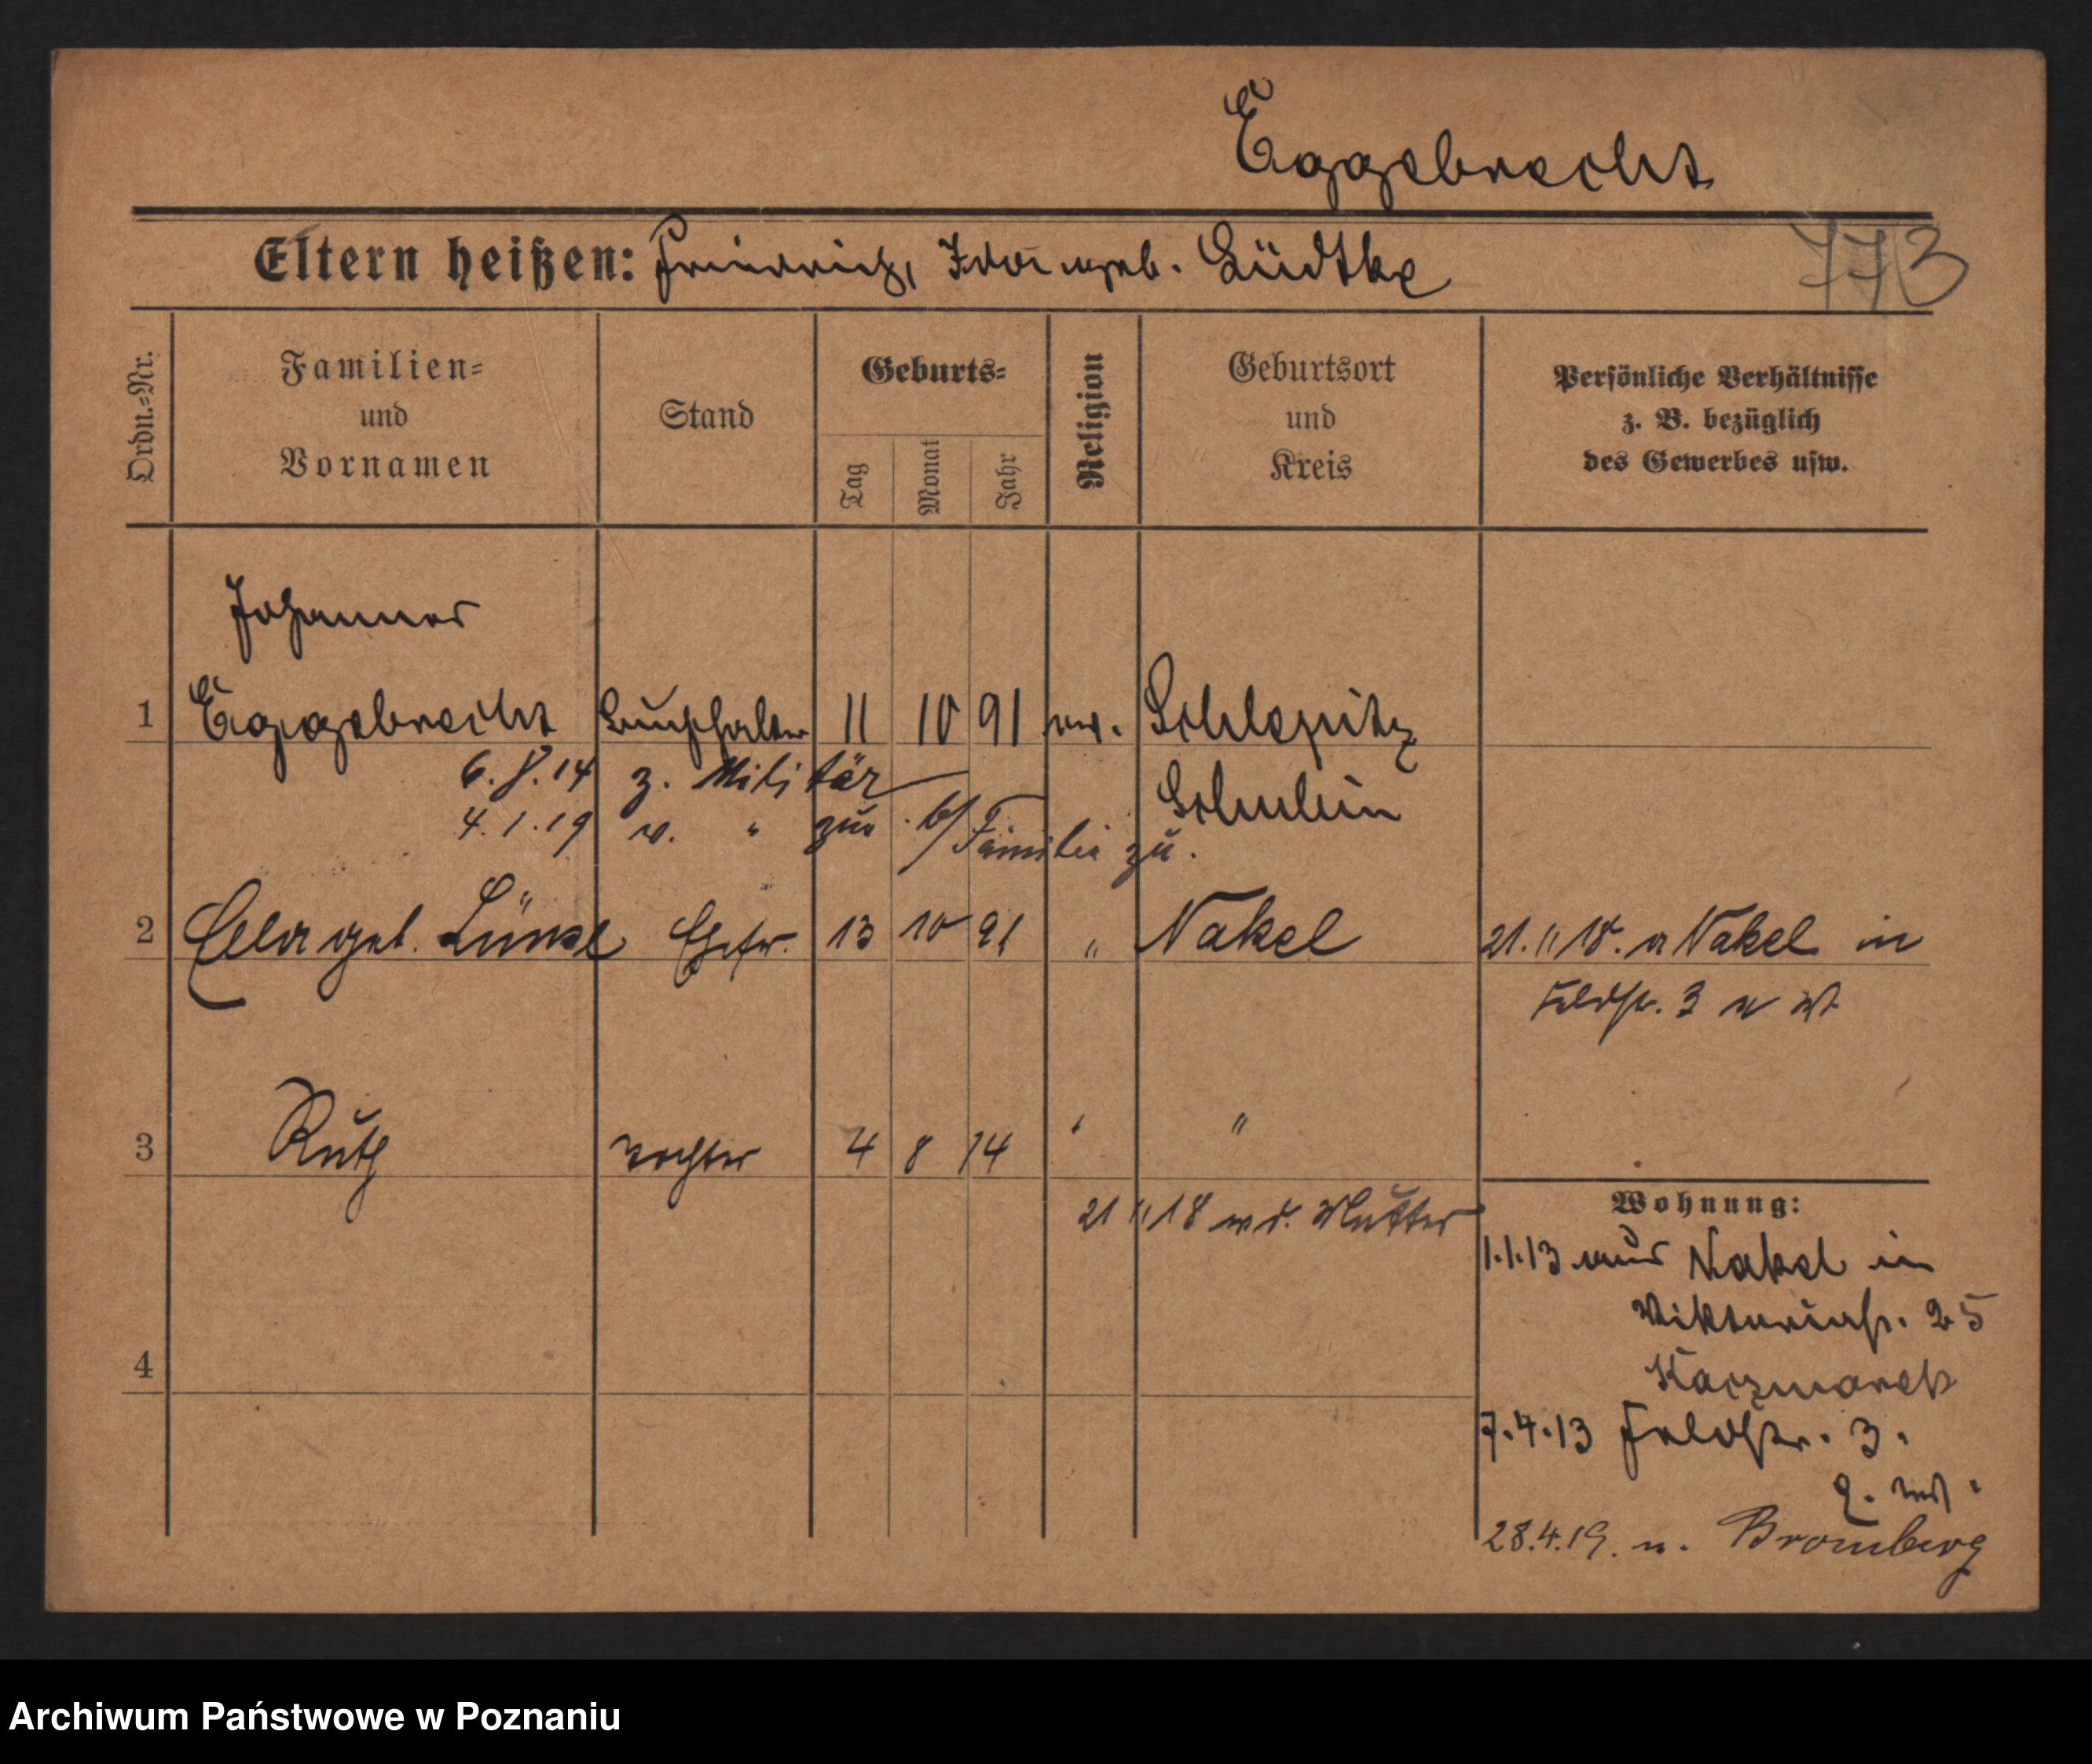 Eggebrecht
Eltern heißen: Friedrich, Ida geb. Lüdtke
773
Ordn.=Nr.
Familien=
und
Vornamen
Stand
Geburts=
Tag
Monat
Jahr
Religion
Geburtsort
und
Kreis
Persönliche Verhältnisse
z. B. bezüglich
des Gewerbes usw.
Johannes
1 Eggebrecht Buchhalter 11 10 91 ev. Schlepitz
6. 8. 14 z. Militär
Schubin
4. 1. 19 v. " zur. b/ Familie zu.
2 Ella geb. Ehefr. 13 10 91 " Nakel 21. 11 18. n Nakel in
Feldstr. 3
3 Ruth Tochter 4 8 14 " "
21 11 18 m. d. Mutter
Wohnung:
1.1.13 aus Nakel in
Viktoriastr. 25
Kaczmarek
4
7.4.13 Feldstr. 3.
28.4.19. n. Bromberg
Archiwum Państwowe w Poznaniu